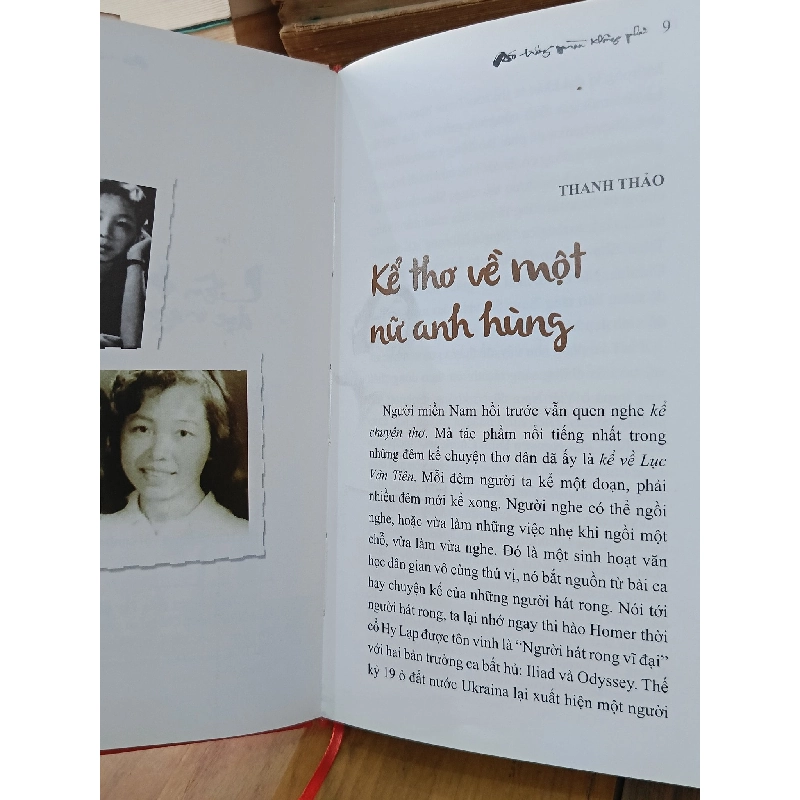 9
THANH THẢO
Kể thơ về một
nữ anh hùng
Người miền Nam hồi trước vẫn quen nghe kể
chuyện thơ. Mà tác phẩm nổi tiếng nhất trong
những đêm kể chuyện thơ dân dã ấy là kể về Lục
Vân Tiên. Mỗi đêm người ta kể một đoạn, phải
nhiều đêm mới kể xong. Người nghe có thể ngồi
nghe, hoặc vừa làm những việc nhẹ khi ngồi một
chỗ, vừa làm vừa nghe. Đó là một sinh hoạt văn
học dân gian vô cùng thú vị, nó bắt nguồn từ bài ca
hay chuyện kể của những người hát rong. Nói tới
người hát rong, ta lại nhớ ngay thi hào Homer thời
cổ Hy Lạp được tôn vinh là “Người hát rong vĩ đại”
với hai bản trường ca bất hủ: Iliad và Odyssey. Thế
kỷ 19 ở đất nước Ukraina lại xuất hiện một người